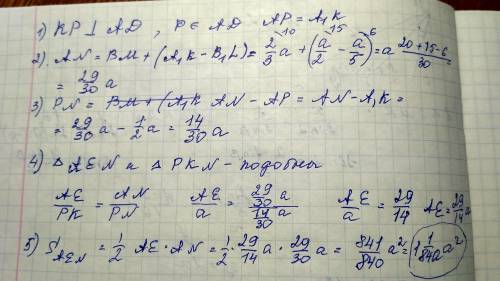 1) KP ⊥ AD, P ∈ AD AP = A₁K
2) AN = BM + (A₁K − B₁L) = 2/3 a\10 + (a/2\15 − a/5\6) = a (20+15−6)/30 =
= 29/30 a
3) PN = B̶M̶ ̶+̶ ̶(̶A̶₁̶K̶ AN − AP = AN − A₁K =
= 29/30 a − 1/2 a = 14/30 a
4) △AEN и △PKN − подобны
AE/PK = AN/PN AE/a = (29/30 a)/(14/30 a) AE/a = 29/14 AE = 29/14 a
5) S_AEN = 1/2 AE · AN = 1/2 · 29/14 a · 29/30 a = 841/840 a² = 1 1/840 a²